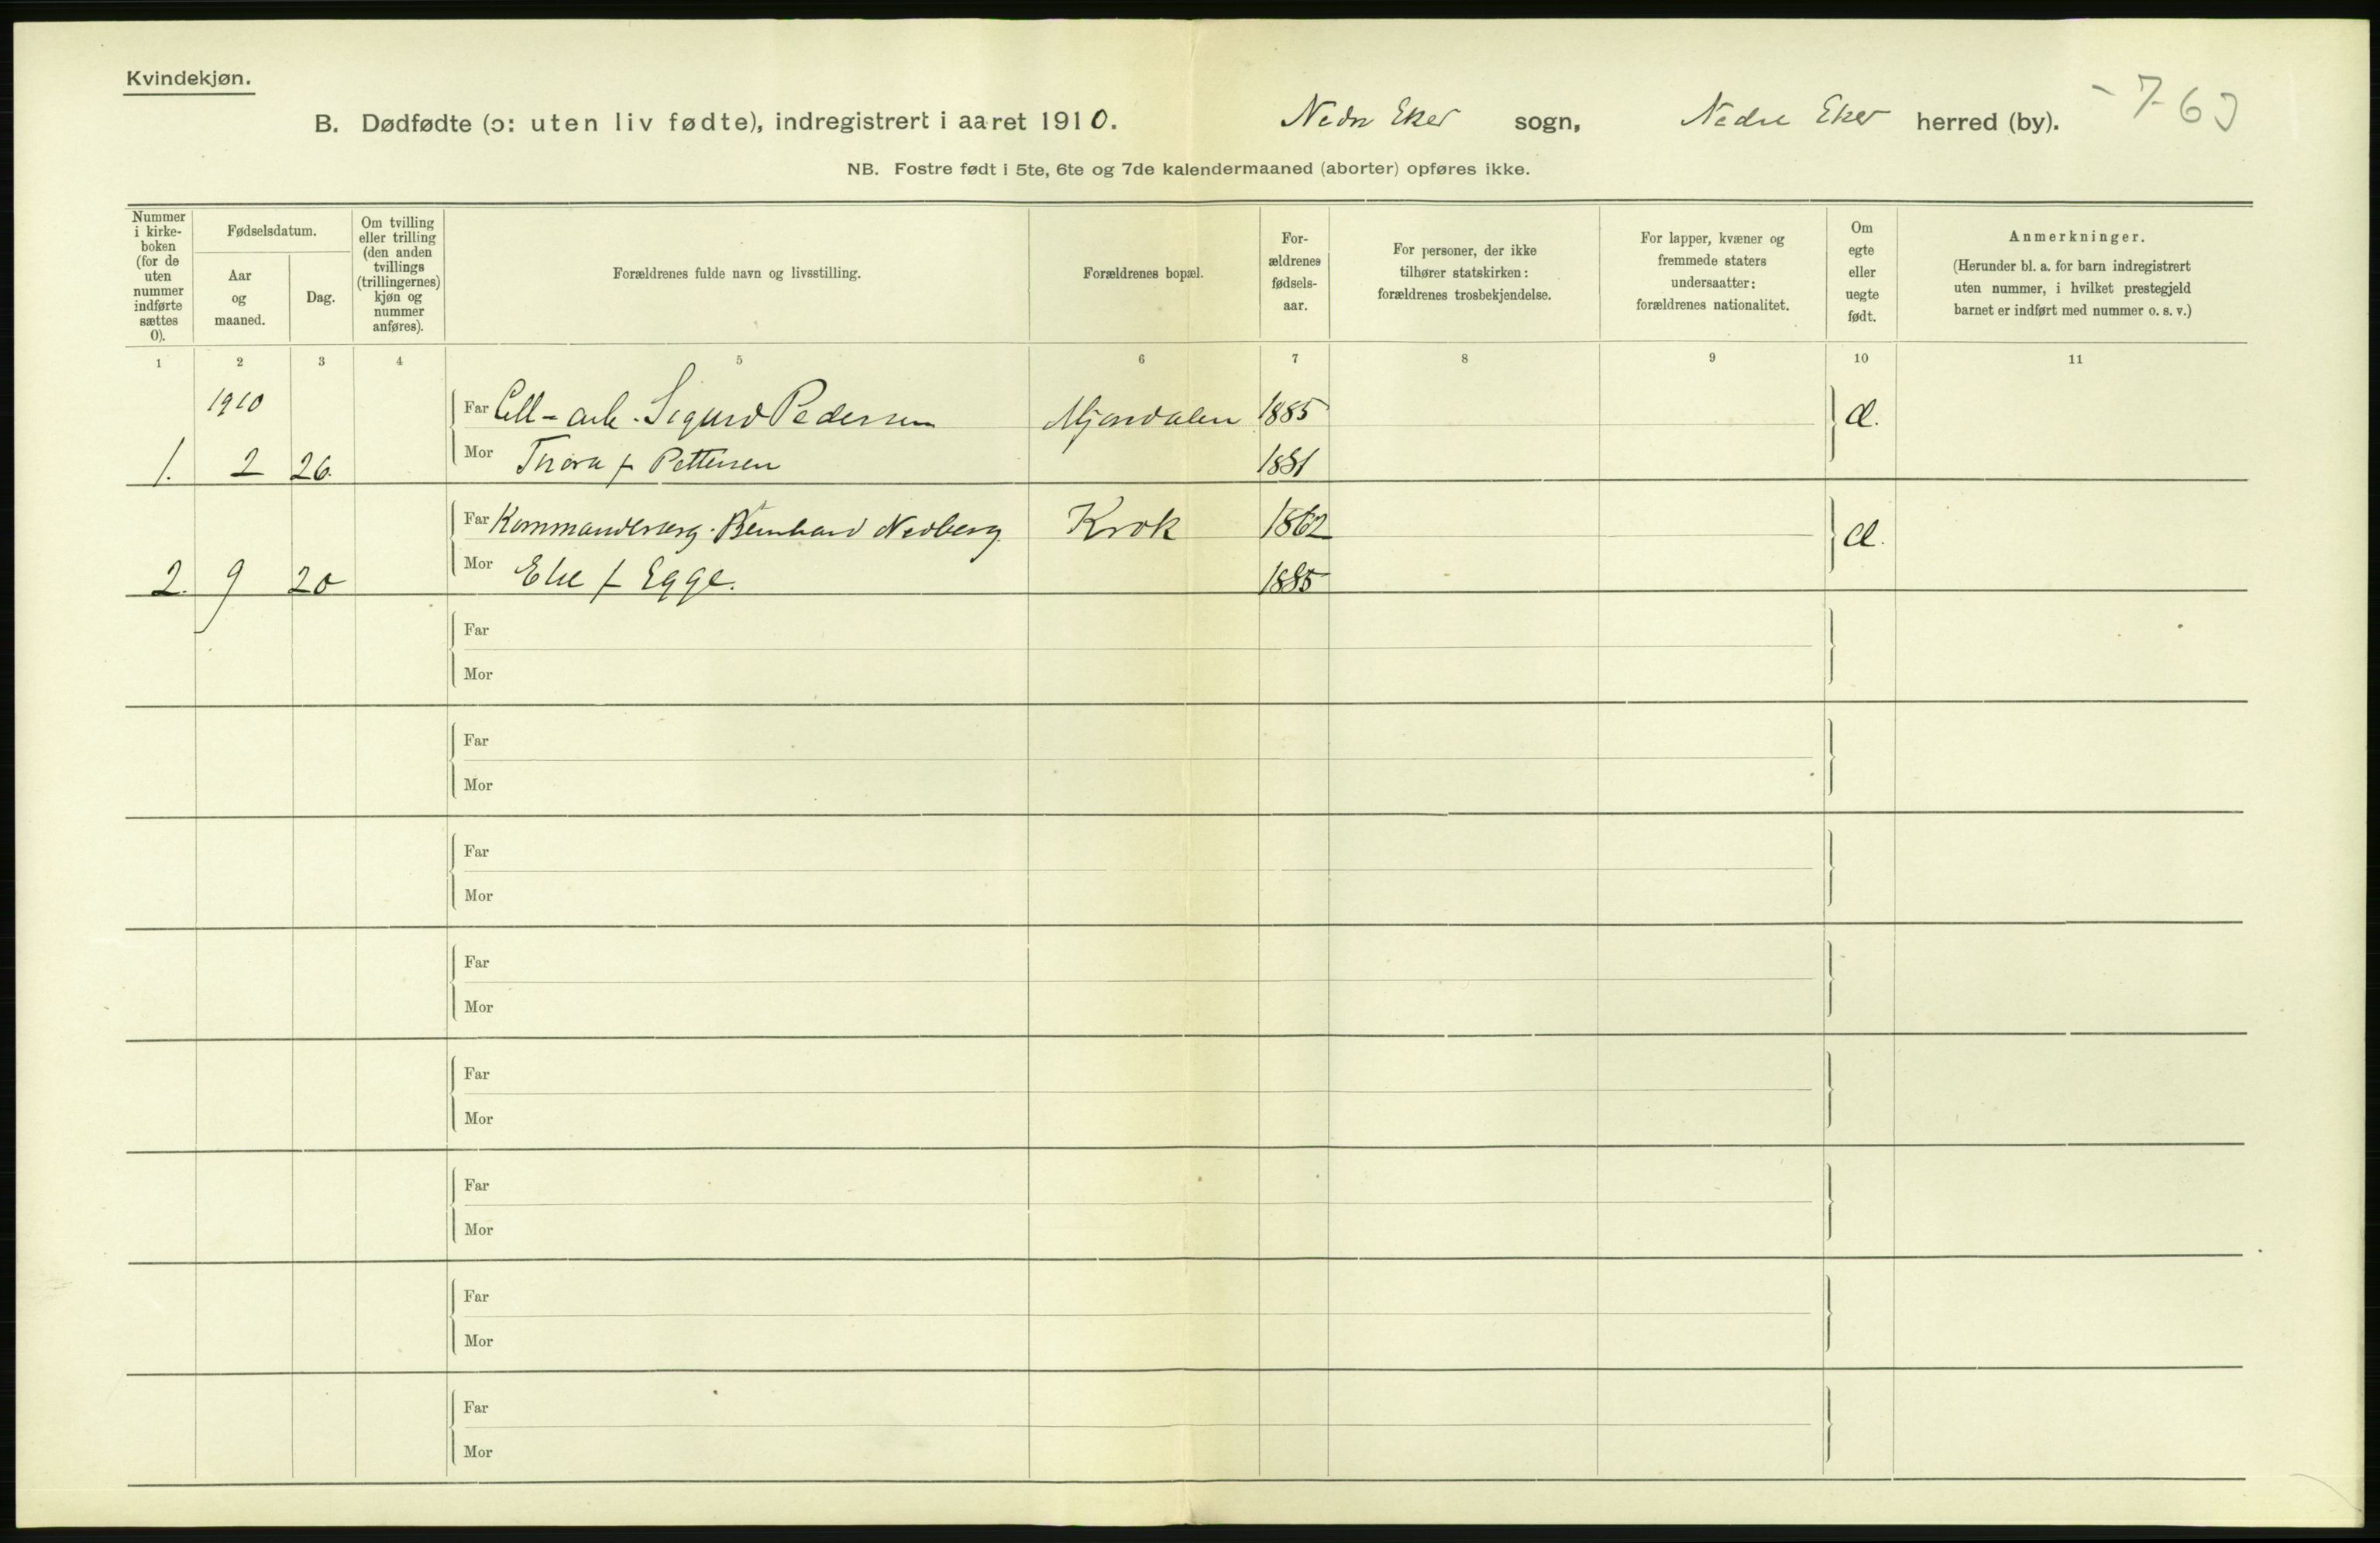 Kvindekjøn.
B. Dødfødte (ɔ: uten liv fødte), indregistrert i aaret 1910. Nedre Eker sogn, Nedre Eker herred (by).
NB. Fostre født i 5te, 6te og 7de kalendermaaned (aborter) opføres ikke.
Nummer i kirke-boken (for de uten nummer indførte sættes 0).
Fødselsdatum.
Aar og maaned.
Dag.
Om tvilling eller trilling (den anden tvillings (trillingernes) kjøn og nummer anføres).
Forældrenes fulde navn og livsstilling.
Forældrenes bopæl.
For-ældrenes fødsels-aar.
For personer, der ikke tilhører statskirken: forældrenes trosbekjendelse.
For lapper, kvæner og fremmede staters undersaatter: forældrenes nationalitet.
Om egte eller uegte født.
Anmerkninger.
(Herunder bl. a. for barn indregistrert uten nummer, i hvilket prestegjeld barnet er indført med nummer o. s. v.)
1 2 3 4 5 6 7 8 9 10 11
1910 Far Cell-arb. Sigurd Pedersen Mjøndalen 1885 Æ.
1. 2 26. Mor Thora f Pettersen 1881
Far Kommanderserg. Bernhard Nedberg Krok 1862 Æ.
2. 9 20 Mor Else f Egge. 1885
Far
Mor
Far
Mor
Far
Mor
Far
Mor
Far
Mor
Far
Mor
Far
Mor
Far
Mor